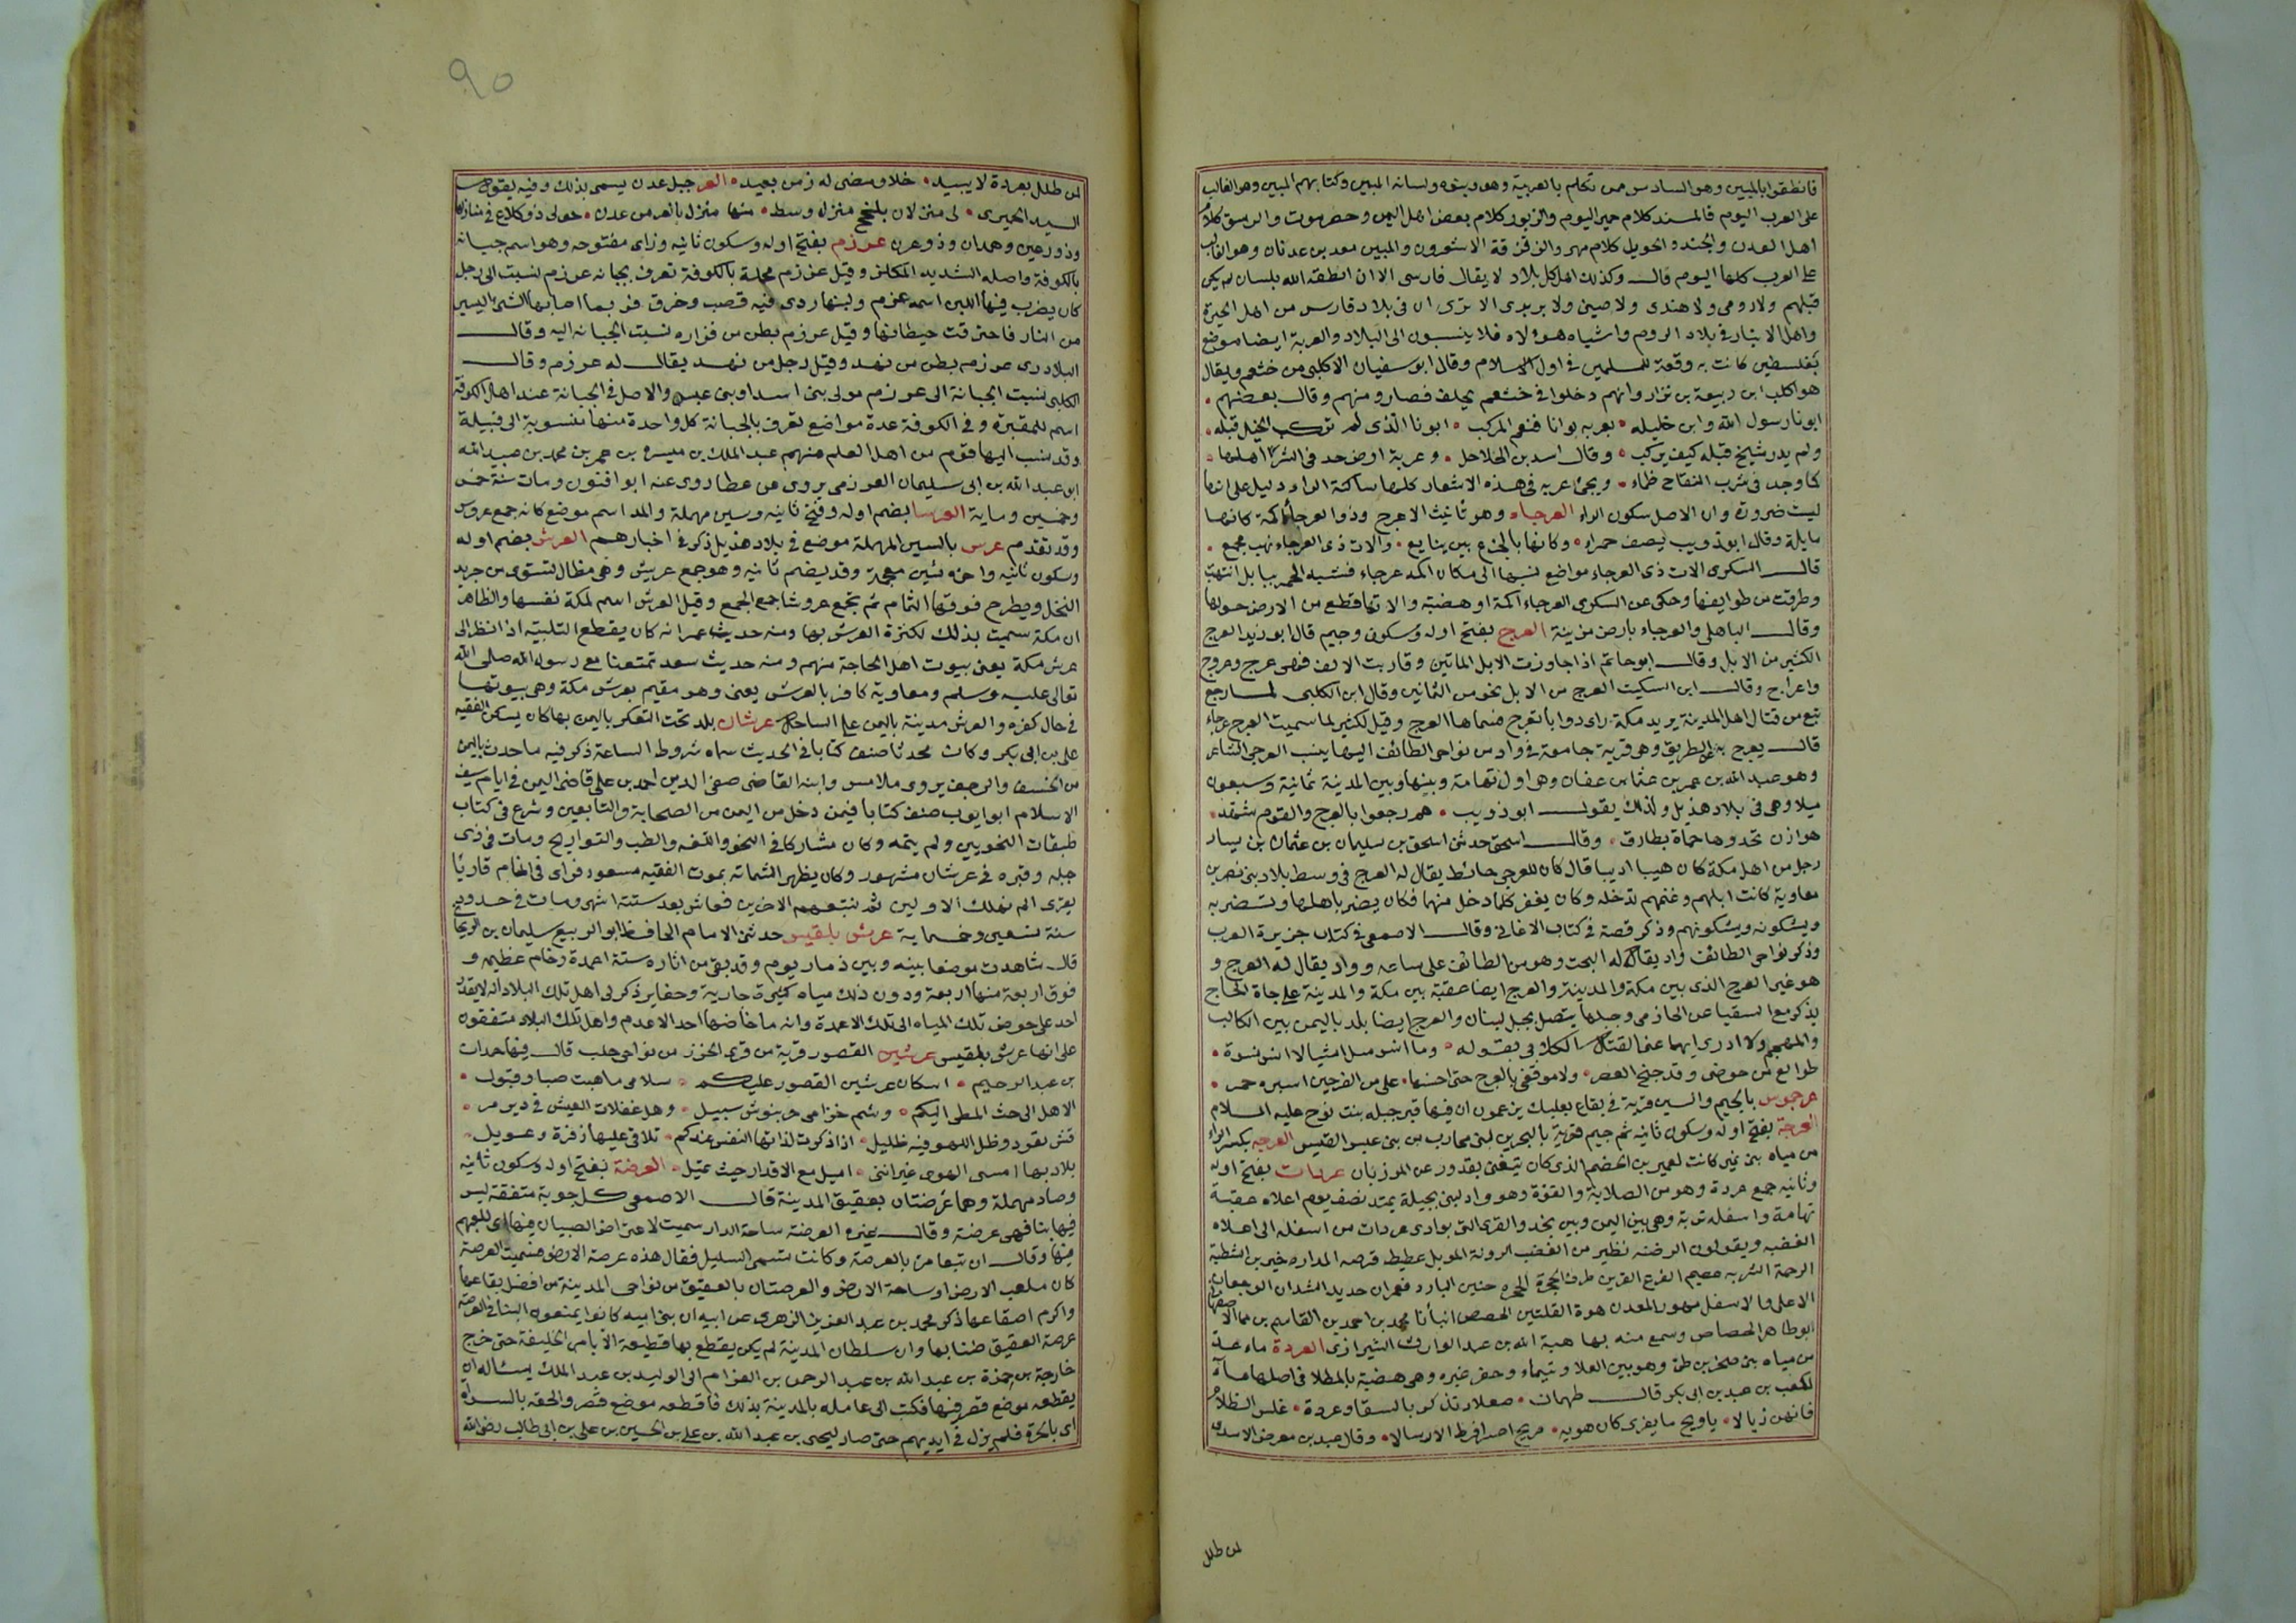 فانطقوا بالمبين وهو السادس ممن تكلم بالعربية وهو وبنوه ولسانه المبين وكتابهم المبين وهو الغالب
على العرب اليوم فالمسند كلام حمير اليوم والزبور كلام بعض اهل اليمن وحضرموت والرسق كلام
اهل العدن والجند والحويل كلام مهره والزقزقة الاشعرون والمبين معد بن عدنان وهو الغالب
على العرب كلها اليوم قال وكذلك اهل كل بلاد لا يقال فارسى الا ان انطقه الله بلسان لم يكن
قبلهم ولا رومى ولا هندى ولا صينى ولا بربرى الا ترى ان فى بلاد فارس من اهل الحيرة
واهل الانبار فى بلاد الروم واشباه هؤلاء فلا ينسبون الى البلاد والعربة ايضا موضع
بفلسطين كانت به وقعة للمسلمين فى اول الاسلام وقال ابو سفيان الاكلبى من خثعم ويقال
هو اكلب ابن ربيعة بن نزار وانهم دخلوا فى خثعم بحلف فصاروا منهم وقال بعضهم
ابونا رسول الله وابن خليله بعربه بوانا فنعم المركب ابونا الذى لم تركب الخيل قبله
ولم يدر شيخ قبله كيف يركب وقال اسد بن الحلاحل وعربة ارض جد فى الشر اهلها
كما وجد فى شرب النقاح ظماء ويجئ عربه فى هذه الاشعار كلها ساكنة الراء دليل على انها
ليست ضرورة وان الاصل سكون الراء العرجاء وهو تأنيث الاعرج وذو العرجاء اكمة كانها
مايلة وقال ابو ذويب يصف حمرا وكانها بالجزع بين ينابع والات ذى العرجاء نهب مجمع
قال السكرى الات ذى العرجاء مواضع نسبها الى مكان اكمه عرجاء فشبه الحمر بابل انتهبت
وطرقت من طوايفها وحكى عن السكرى العرجاء اكمة او هضبة والاتها قطع من الارض حولها
وقال الباهلى والعرجاء بارض مزينة العرج بفتح اوله وسكون وجيم قال ابو زيد العرج
الكثير من الابل وقال ابو حاتم اذا جاوزت الابل المأتين وقاربت الالف فهى عرج وعروج
واعراج وقال ابن السكيت العرج من الابل نحو من الثمانين وقال ابن الكلبى لما رجع
تبع من قتال اهل المدينة يريد مكة راى دوابا تعرج فسماها العرج وقيل لكثير لما سميت العرج عرجاء
قال يعرج به عن الطريق وهو قرية جامعة فى واد من نواحى الطائف اليها ينسب العرجى الشاعر
وهو عبد الله بن عمر بن عثمان بن عفان وهى اول تهامة وبينها وبين المدينة ثمانية وسبعون
ميلا وهى فى بلاد هذيل ولذلك يقول ابو ذويب هم رجعوا بالعرج والقوم شهد
هوازن تحدوها حماة بطارق وقال اسحق حدثنى اسحق بن سليمان بن عثمان بن يسار
رجل من اهل مكة كان هيبا اديبا قال كان للعرجى حائط يقال له العرج فى وسط بلاد بنى نصر بن
معاوية كانت ابلهم وغنمهم تدخله وكان يعقر كلما دخل منها فكان يضر باهلها وتضر به
ويشكونه ويشكونهم وذكر قصة فى كتاب الاغانى وقال الاصمعى فى كتاب جزيرة العرب
وذكر نواحى الطائف واد يقال له البحت وهو من الطائف على ساعه وواد يقال له العرج و
هو غير العرج الذى بين مكة والمدينة والعرج ايضا عقبة بين مكة والمدينة على جادة الحاج
يذكر مع السقيا عن الحازمى وجبلها يتصل بجبل لبنان والعرج ايضا بلد باليمن بين المحالب
والمهجم ولا ادرى ايهما عنا القتال الكلابى بقوله وما انس من اشيا لا انس نسوة
طوالع من حوضى وقد جنح العصر ولا موقفى بالعرج حتى اجنها على من العرجين اسبره حمر
عرجموس بالجيم والسين قرية فى بقاع بعلبك يزعمون ان فيها قبر حبله بنت نوح عليه السلام
العرجة بفتح اوله وسكون ثانيه ثم جيم قرية بالبحرين لبنى محارب من بنى عبد القيس العرجه بكسر الراء
من مياه بنى نمير كانت لعمير بن الحضم الذى كان يتغنى بقدور عن المرزبان عردات بفتح اوله
وثانيه جمع عردة وهو من الصلابة والقوة وهو واد لبنى بجيلة يمتد نصف يوم اعلاه عقبة
تهامة واسفله تربة وهى بين اليمن وبين نجد والقرى التى بوادى عردات من اسفله الى اعلاه
الغضبه ويقولون الرضنه نظير من الغضب الرونة الموبل عطيط قرصه المداره خير بن الشطبة
الرجمة الشربه عصيم الفرع القرين طرف الحجرة حنين البارد قعمران حديد الشدان
الاعلى والاسفل مهور المعدن هوة القلتين الحصحص انبأنا محمد بن احمد بن القاسم بن مما الاصفهانى
ابو طاهر الحصاص وسمع منه بها هبة الله بن عبد الوارث الشيرازى العردة ماء عد
من مياه بنى صخر بن طى وهو بين العلا وتيماء وحفر عنيزه وهى هضبة بالمطلا فى اصلها ماءة
لكعب بن عبد بن ابى بكر قال طهمان صعلا تذكر بالسقا وعردة غلس الظلام
فانهن ذيالا ياويح ما يفرى كان هويه مريج اعسر افرط الارسالا وقال عبد بن معرض الاسدى
لمن طلل
٩٥
لمن طلل بعردة لا يبيد خلا ومضى له زمن بعيد العر جبل عدن يسمى بذلك وفيه يقول
السيد الحميرى لى منزلان بلحج منزل وسط منها منزل بالعر من عدن حولى ذو كلاع فى منازلها
وذو رعين وهمدان وذو عرن عرزم بفتح اوله وسكون ثانيه وزاى مفتوحه وهو اسم جبانه
بالكوفة واصله الشديد المكلز وقيل عرزم محلة بالكوفة تعرف بجبانه عرزم نسبت الى رجل
كان يضرب فيها اللبن اسمه عرزم ولبنها ردى فيه قصب وخرق فربما اصابها الشئ اليسير
من النار فاحترقت حيطانها وقيل عرزم بطن من فزاره نسبت الجبانه اليه وقال
البلادرى عرزم بطن من نهد وقيل رجل من نهد يقال له عرزم وقال
الكلبى نسبت الجبانة الى عرزم مولى بنى اسد او بنى عبس والاصل فى الجبانة عند اهل الكوفة
اسم للمقبرة وفى الكوفة عدة مواضع تعرف بالجبانة كل واحدة منها منسوبة الى قبيلة
وقد نسب اليها قوم من اهل العلم منهم عبد الملك بن ميسره بن عمر بن محمد بن عبيد الله
ابو عبد الله بن ابى سليمان العرزمى يروى عن عطا روى عنه ابو افنون ومات سنة خمس
وخمسين وماية العرسا بضم اوله وفتح ثانيه وسين مهملة والمد اسم موضع كانه جمع عروس
وقد تقدم عرس بالسين المهملة موضع فى بلاد هذيل ذكر فى اخبارهم العرش بضم اوله
وسكون ثانيه واخره شين معجمة وقد يضم ثانيه وهو جمع عريش وهى مظال تستوى من جريد
النخل ويطرح فوقها الثمام ثم تجمع عروشا جمع الجمع وقيل العرش اسم لمكة نفسها والظاهر
ان مكة سميت بذلك لكثرة العرش بها ومنه حديث عمر انه كان يقطع التلبية اذا نظر الى
عرش مكة يعنى بيوت اهل الحاجة منهم ومنه حديث سعد تمتعنا مع رسول الله صلى الله
تعالى عليه وسلم ومعاوية كافر بالعرش يعنى وهو مقيم بعرش مكة وهى بيوتها
فى حال كفره والعرش مدينة باليمن على الساحل عرشان بلد تحت التعكر باليمن بها كان يسكن الفقيه
على بن ابى بكر وكان محدثا صنف كتابا فى الحديث سماه شروط الساعة ذكر فيه ما حدث باليمن
من الخسف والرجف يروى ملامس وابنه القاضى صفى الدين احمد بن على قاضى اليمن فى ايام سيف
الاسلام ابو ايوب صنف كتابا فيمن دخل من اليمن من الصحابة والتابعين وشرع فى كتاب
طبقات النحويين ولم يتمه وكان مشاركا فى النحو والفقه والطب والتواريخ ومات فى ذى
جبله وقبره فى عرشان مشهور وكان يظهر الشماته بموت الفقيه مسعود فراى فى المنام قاريا
يقرى الم نهلك الاولين ثم نتبعهم الاخرين فعاش بعد ستة اشهر ومات فى حدود
سنة تسعين وخمساية عرش بلقيس حدثنى الامام الحافظ ابو الربيع سليمان بن الريحان
قال شاهدت موضعا بينه وبين ذمار يوم وقد بقى من اثاره ستة اعمدة رخام عظيمه و
فوق اربعة منها اربعة ودون ذلك مياه كثيرة جارية وحفاير ذكر لى اهل تلك البلاد انه لا يقدر
احد على خوض تلك المياه الى تلك الاعمدة وانه ما خاضها احد الا عدم واهل تلك البلاد متفقون
على انها عرش بلقيس عرشين القصور قرية من قرى الجزر من نواحى حلب قال فيها حمدان
بن عبد الرحيم اسكان عرشين القصور عليكم سلامى ما هبت صبا وقبول
الا هل الى حث المطى اليكم وشم خزامى حربنوش سبيل وهل غفلات العيش فى دير مر
قش تعود وظل اللهو فيه ظليل اذا ذكرت لذاتها النفس عندكم تلاقى عليها زفرة وعويل
بلاد بها امسى الهوى غير اننى اميل مع الاقدار حيث تميل العرصة بفتح اوله وسكون ثانيه
وصاد مهملة وهما عرصتان بعقيق المدينة قال الاصمعى كل جوبة متفقة ليس
فيها بنا فهى عرصة وقال غيره العرصة ساحة الدار سميت لاعتراض الصبيان فيها اى للعبهم
فيها وقال ان تبعا مر بالعرصة وكانت تسمى السليل فقال هذه عرصة الارض فسميت العرصة
كان ملعب الارض او ساحة الارض والعرصتان بالعقيق من نواحى المدينة من افضل بقاعها
واكرم اصقاعها ذكر محمد بن عبد العزيز الزهرى عن ابيه ان بنى اميه كانوا يمنعون البنا فى العرصة
عرصة العقيق ضنا بها وان سلطان المدينة لم يكن يقطع بها قطيعة الا بامر الخليفة حتى خرج
خارجة بن حمزة بن عبد الله بن عبد الرحمن بن العوام الى الوليد بن عبد الملك يسئاله ان
يقطعه موضع قصر فيها فكتب الى عامله بالمدينة بذلك فاقطعه موضع قصر والحقه بالسراه
اى بالحرة فلم يزل فى ايديهم حتى صار ليحيى بن عبد الله بن على بن الحسين بن على بن ابى طالب رضى الله